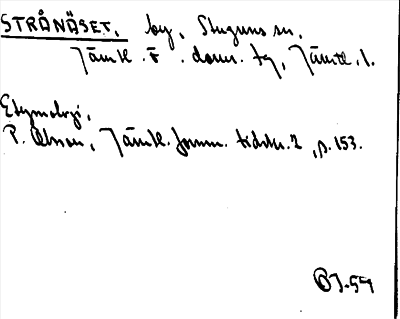 STRÅNÄSET, by, Stuguns sn,
Jämtl. F. dom. tg, Jämtl. l.
Etymologi,
P. Olsson, Jämtl. fornm. tidskr. 2, p. 153.
BJ-59